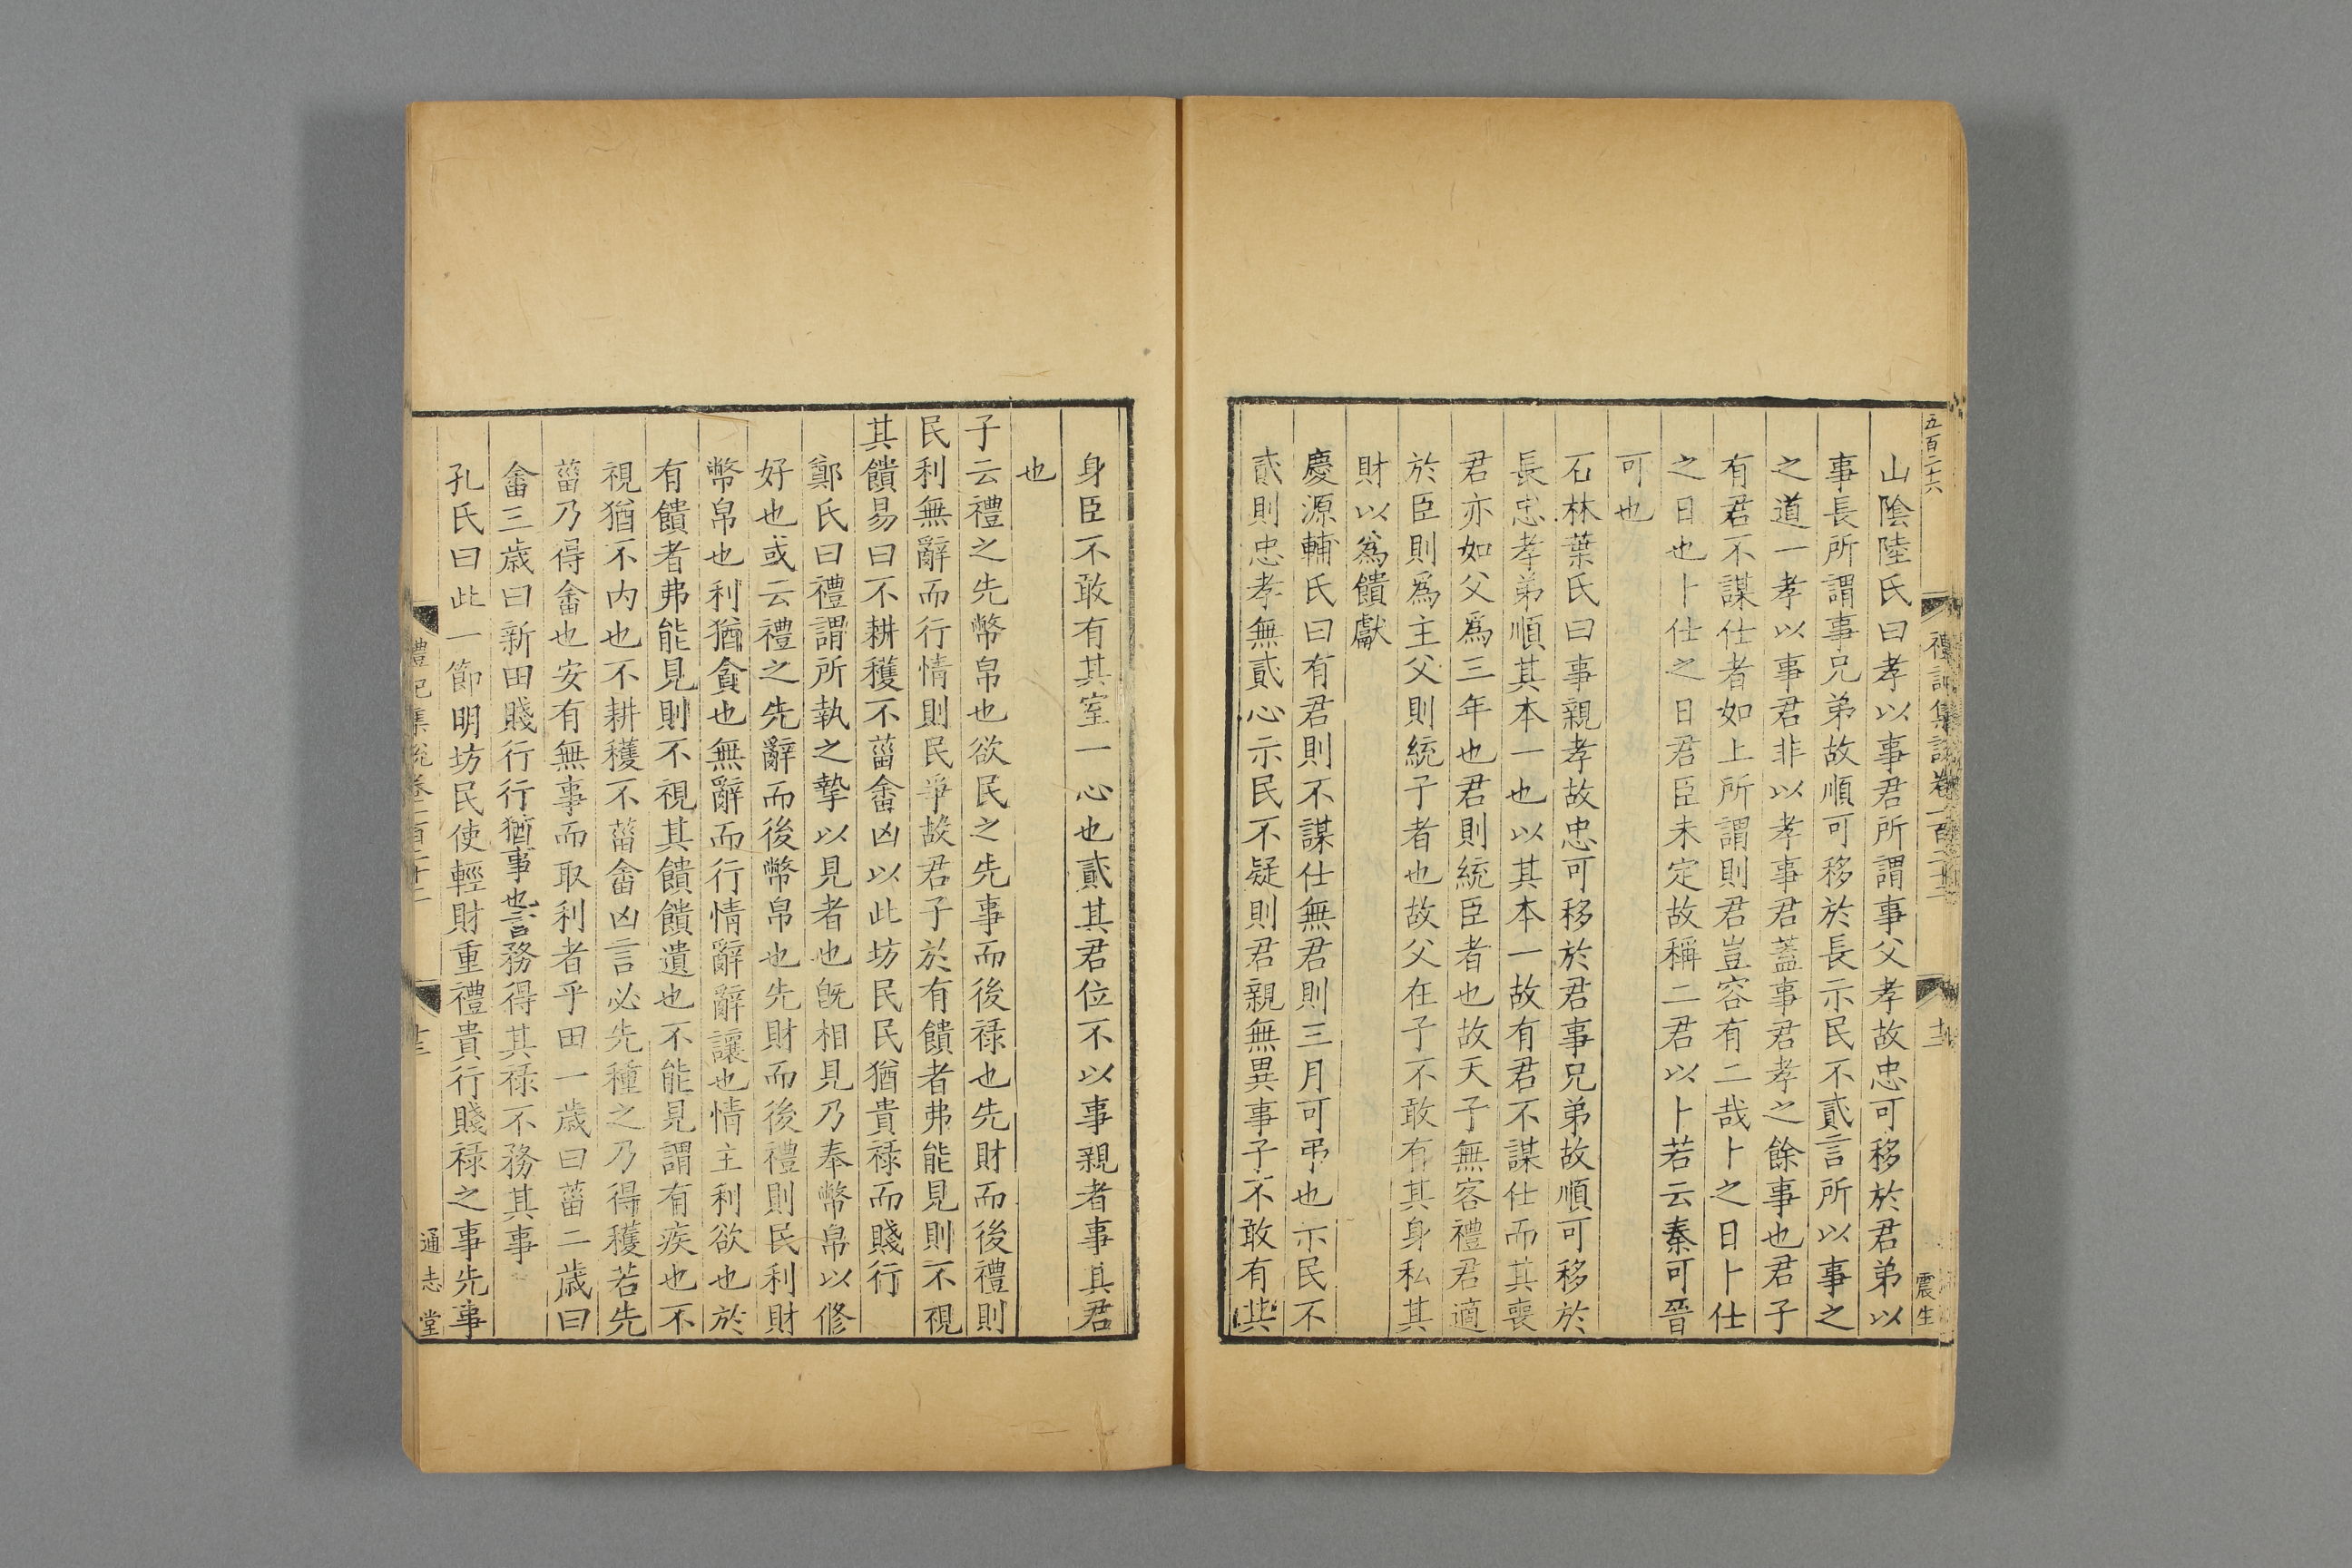 五百二十六
禮記集說卷一百二十二
十二
震生
山陰陸氏曰孝以事君所謂事父孝故忠可移於君弟以
事長所謂事兄弟故順可移於長示民不貳言所以事之
之道一孝以事君非以孝事君蓋事君孝之餘事也君子
有君不謀仕者如上所謂則君豈容有二哉卜之日卜仕
之日也卜仕之日君臣未定故稱二君以卜若云秦可晉
可也
石林葉氏曰事親孝故忠可移於君事兄弟故順可移於
長忠孝弟順其本一也以其本一故有君不謀仕而其喪
君亦如父爲三年也君則統臣者也故天子無客禮君適
於臣則爲主父則統子者也故父在子不敢有其身私其
財以爲饋獻
慶源輔氏曰有君則不謀仕無君則三月可弔也示民不
貳則忠孝無貳心示民不疑則君親無異事子不敢有其
身臣不敢有其室一心也貳其君位不以事親者事其君
也
子云禮之先幣帛也欲民之先事而後祿也先財而後禮則
民利無辭而行情則民爭故君子於有饋者弗能見則不視
其饋易曰不耕穫不菑畬凶以此坊民民猶貴祿而賤行
鄭氏曰禮謂所執之摯以見者也旣相見乃奉幣帛以修
好也或云禮之先辭而後幣帛也先財而後禮則民利財
幣帛也利猶貪也無辭而行情辭辭讓也情主利欲也於
有饋者弗能見則不視其饋饋遺也不能見謂有疾也不
視猶不內也不耕穫不菑畬凶言必先種之乃得穫若先
菑乃得畬也安有無事而取利者乎田一歲曰菑二歲曰
畬三歲曰新田賤行行猶事也言務得其祿不務其事
孔氏曰此一節明坊民使輕財重禮貴行賤祿之事先事
禮記集說卷一百二十二
十三
通志堂